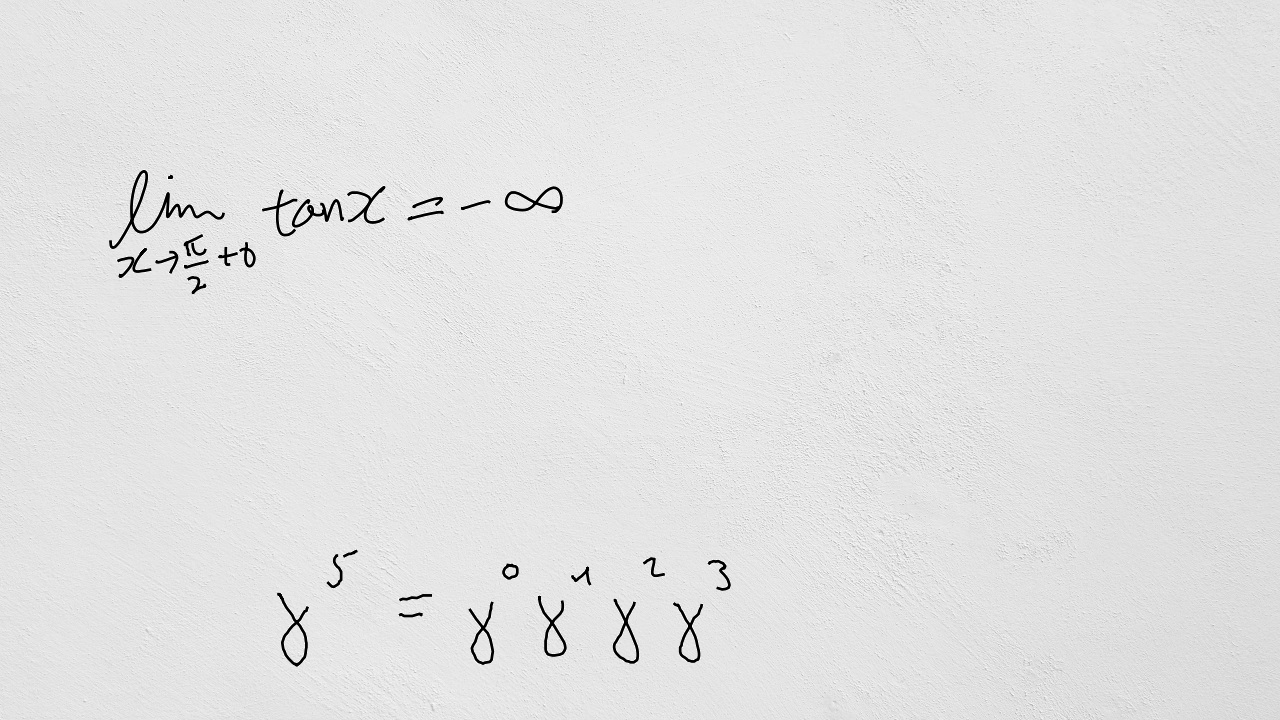 $\lim_{x \to \frac{\pi}{2}+0} \tan x = -\infty$
$\gamma^5 = \gamma^0 \gamma^1 \gamma^2 \gamma^3$